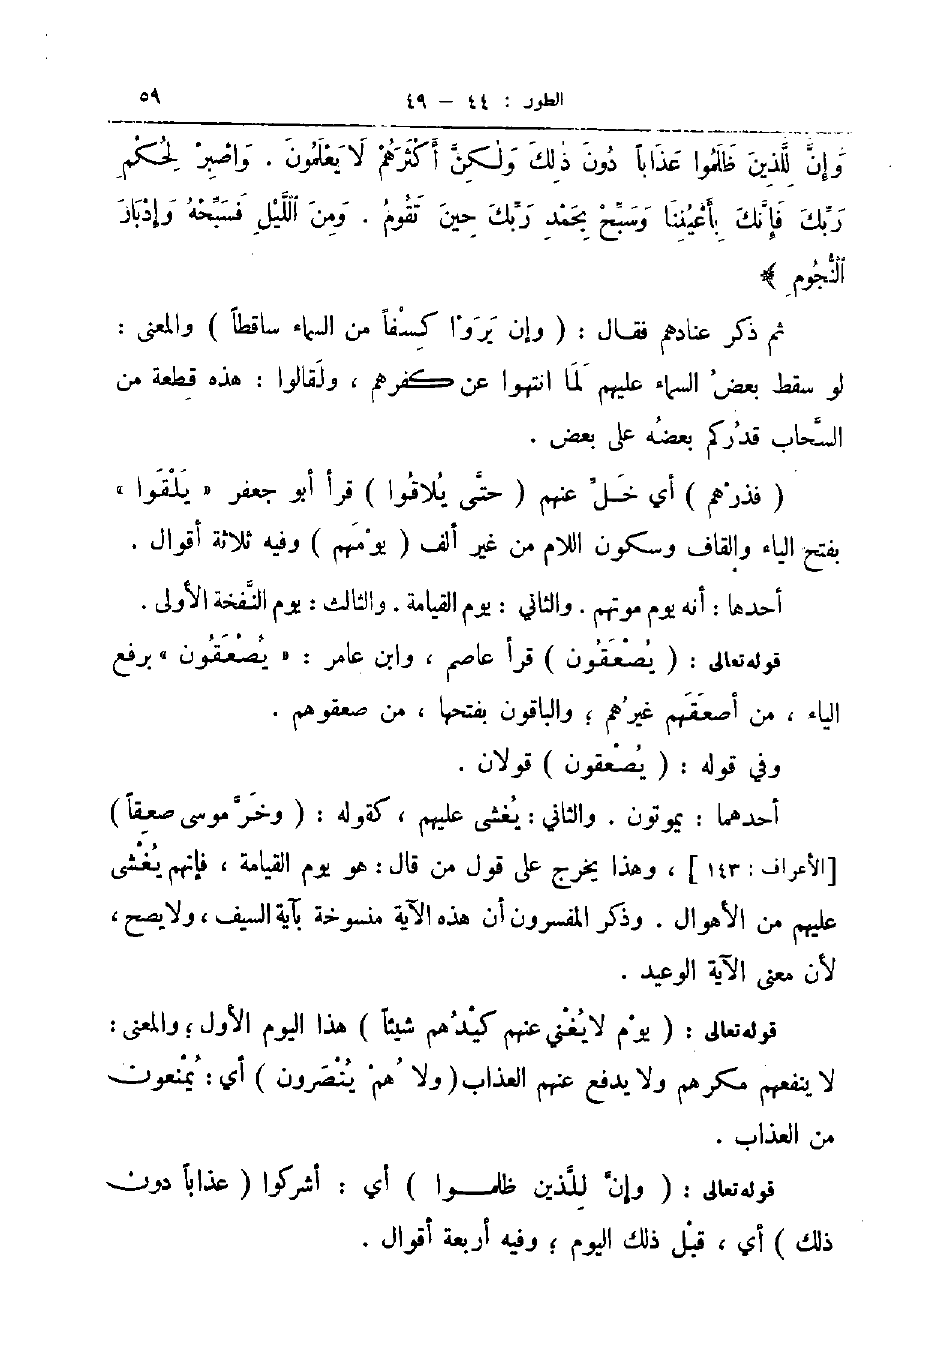 الطور : ٤٤ – ٤٩ ٥٩
وَإِنَّ لِلَّذِينَ ظَلَمُوا عَذَاباً دُونَ ذٰلِكَ وَلٰكِنَّ أَكْثَرَهُمْ لَا يَعْلَمُونَ . وَاصْبِرْ لِحُكْمِ
رَبِّكَ فَإِنَّكَ بِأَعْيُنِنَا وَسَبِّحْ بِحَمْدِ رَبِّكَ حِينَ تَقُومُ . وَمِنَ اللَّيْلِ فَسَبِّحْهُ وَإِدْبَارَ
النُّجُومِ ﴾
ثم ذكر عنادهم فقال : ( وإن يَرَوْا كِسْفاً من السماء ساقطاً ) والمعنى :
لو سقط بعضُ السماء عليهم لَمَا انتهوا عن كفرهم ، ولَقالوا : هذه قطعة من
السَّحاب قد رُكم بعضُه على بعض .
( فذرْهم ) أي خَلِّ عنهم ( حتَّى يُلاقُوا ) قرأ أبو جعفر « يَلْقَوا »
بفتح الياء والقاف وسكون اللام من غير ألف ( يومَهم ) وفيه ثلاثة أقوال .
أحدها : أنه يوم موتهم . والثاني : يوم القيامة . والثالث : يوم النَّفخة الأولى .
قوله تعالى : ( يُصْعَقُون ) قرأ عاصم ، وابن عامر : « يُصْعَقُون » برفع
الياء ، من أصعَقَهم غيرُهم ؛ والباقون بفتحها ، من صعقوهم .
وفي قوله : ( يُصْعقون ) قولان .
أحدهما : يموتون . والثاني : يُغشى عليهم ، كقوله : ( وخَرَّ موسى صعِقاً )
[ الأعراف : ١٤٣ ] ، وهذا يخرج على قول من قال : هو يوم القيامة ، فإنهم يُغْشى
عليهم من الأهوال . وذكر المفسرون أن هذه الآية منسوخة بآية السيف ، ولا يصح ،
لأن معنى الآية الوعيد .
قوله تعالى : ( يوْم لا يُغْني عنهم كيْدُهم شيئاً ) هذا اليوم الأول ؛ والمعنى :
لا ينفعهم مكرهم ولا يدفع عنهم العذاب ( ولا هُمْ يُنْصَرون ) أي : يُمْنعون
من العذاب .
قوله تعالى : ( وإنَّ للَّذين ظلموا ) أي : أشركوا ( عذاباً دون
ذلك ) أي ، قبْل ذلك اليوم ؛ وفيه أربعة أقوال .